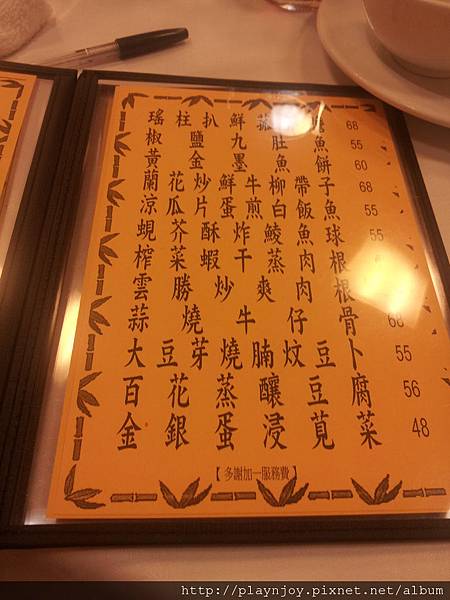 瑤柱扒鮮菰 68
椒鹽九肚魚 55
黃金墨魚餅 60
蘭花炒鮮牛柳帶子 68
涼瓜片蛋煎白飯魚 55
蜆芥酥炸鯪魚球 55
榨菜蝦干蒸肉根
雲勝炒爽肉根
蒜燒牛仔骨 68
大豆芽燒腩炆豆卜 55
百花蒸釀豆腐 56
金銀蛋浸莧菜 48
【多謝加一服務費】
http://playnjoy.pixnet.net/album